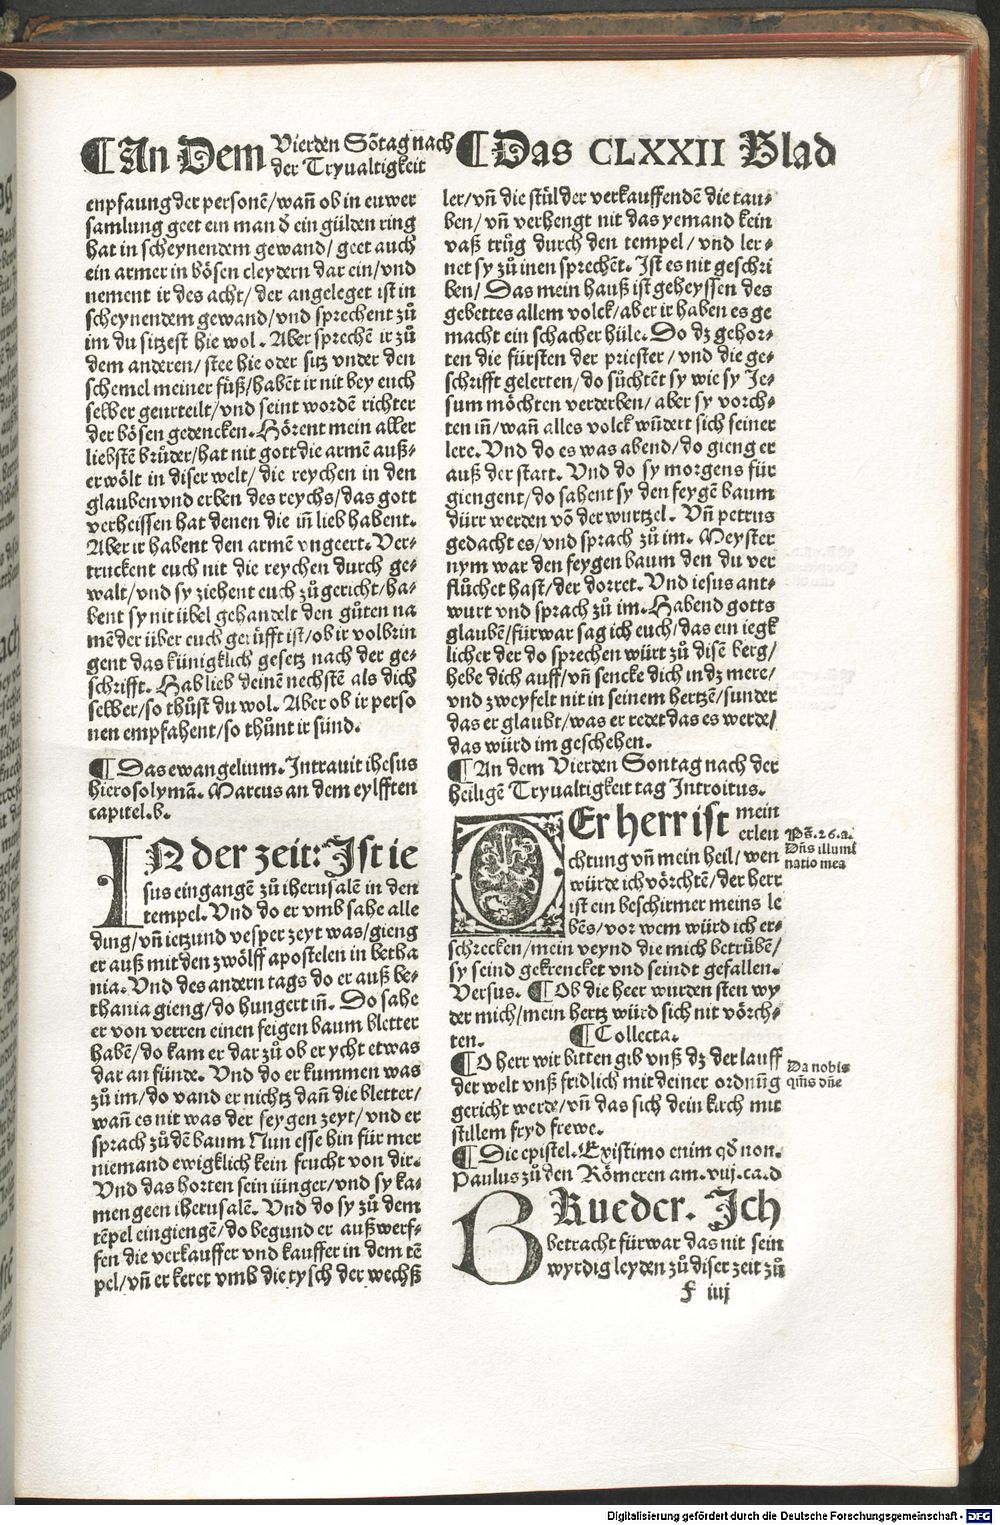 ¶ An Dem Vierden Sõtag nach der Tryualtigkeit ¶ Das CLXXII Blad
enpfaung der personẽ/wañ ob in euwer
samlung geet ein man ď ein gülden ring
hat in scheynendem gewand/ geet auch
ein armer in bösen cleydern dar ein/vnd
nement ir des acht/ der angeleget ist in
scheynendem gewand/vnd sprechent zů
im du sitzest hie wol. Aber sprechẽ ir zů
dem anderen/ stee hie oder sitz vnder den
schemel meiner füß/habẽt ir nit bey euch
selber geurteilt/vnd seint wordẽ richter
der bösen gedencken. Hörent mein aller
liebstẽ brůder/hat nit gott die armẽ auß-
erwölt in diser welt/ die reychen in den
glauben vnd erben des reychs/das gott
verheissen hat denen die iñ lieb habent.
Aber ir habent den armẽ vngeert. Ver-
truckent euch nit die reychen durch ge-
walt/vnd sy ziehent euch zů gericht/ha-
bent sy nit übel gehandelt den gůten na
mẽ der über euch gerüfft ist/ob ir volbrin
gent das künigklich gesetz nach der ge-
schrifft. Hab lieb deinẽ nechstẽ als dich
selber/so thůst du wol. Aber ob ir perso
nen empfahent/so thůnt ir sünd.
¶ Das ewangelium. Intrauit ihesus
hierosolymã. Marcus an dem eylfften
capitel.b.
IN der zeit: Ist ie
sus eingangẽ zů iherusalẽ in den
tempel. Vnd do er vmb sahe alle
ding/vñ ietzund vesper zeyt was/gieng
er auß mit den zwölff apostelen in betha
nia. Vnd des andern tags do er auß be-
thania gieng/do hungert iñ. Do sahe
er von verren einen feigen baum bletter
habẽ/do kam er dar zů ob er ycht etwas
dar an fünde. Vnd do er kummen was
zů im/do vand er nichtz dañ die bletter/
wañ es nit was der feygen zeyt/vnd er
sprach zů dẽ baum Nun esse hin für mer
niemand ewigklich kein frucht von dir.
Vnd das horten sein iünger/vnd sy ka-
men geen iherusalẽ. Vnd do sy zů dem
tẽpel eingiengẽ/do begund er auß werf-
fen die verkauffer vnd kauffer in dem tẽ
pel/vñ er keret vmb die tysch der wechß
ler/vñ die stül der verkauffendẽ die tau-
ben/ vñ verhengt nit das yemand kein
vaß trůg durch den tempel/ vnd ler-
net sy zů inen sprechẽt. Ist es nit geschri
ben/ Das mein hauß ist geheyssen des
gebettes allem volck/aber ir haben es ge
macht ein schacher hüle. Do dz gehor-
ten die fürsten der priester/ vnd die ge-
schrifft gelerten/do sůchtẽt sy wie sy Je-
sum möchten verderben/ aber sy vorch-
ten iñ/wañ alles volck wũdert sich seiner
lere. Vnd do es was abend/do gieng er
auß der statt. Vnd do sy morgens für
giengent/do sahent sy den feygẽ baum
dürr werden võ der wurtzel. Vñ petrus
gedacht es/vnd sprach zů im. Meyster
nym war den feygen baum den du ver
flůchet hast/der dorret. Vnd iesus ant-
wurt vnd sprach zů im. Habend gotts
glaubẽ/fürwar sag ich euch/das ein iegk
licher der do sprechen würt zů disẽ berg/
hebe dich auff/vñ sencke dich in dz mere/
vnd zweyfelt nit in seinem hertzẽ/sunder
das er glaubt/was er redet das es werde/
das würd im geschehen.
¶ An dem Vierden Sontag nach der
heiligẽ Tryualtigkeit tag Introitus.
DEr herr ist mein
erleu
chtung vñ mein heil/ wen
würde ich vörchtẽ/ der herr
ist ein beschirmer meins le
bẽs/vor wem würd ich er-
schrecken/mein veynd die mich betrübẽ/
sy seind gekrencket vnd seindt gefallen.
Versus. ¶ Ob die heer wurden sten wy
der mich/mein hertz würd sich nit vörch-
ten. ¶ Collecta.
¶ O herr wir bitten gib vnß dz der lauff
der welt vnß fridlich mit deiner ordnũg
gericht werde/vñ das sich dein kirch mit
stillem fryd frewe.
¶ Die epistel. Existimo enim qď non.
Paulus zů den Römeren am.viij.ca.d
BRueder. Ich
betracht fürwar das nit sein
wyrdig leyden zů diser zeit zů
f iiij
Ps̃.26.a.
Dñs illumĩ
natio mea
Da nobis
qm̃s dñe
Digitalisierung gefördert durch die Deutsche Forschungsgemeinschaft - DFG